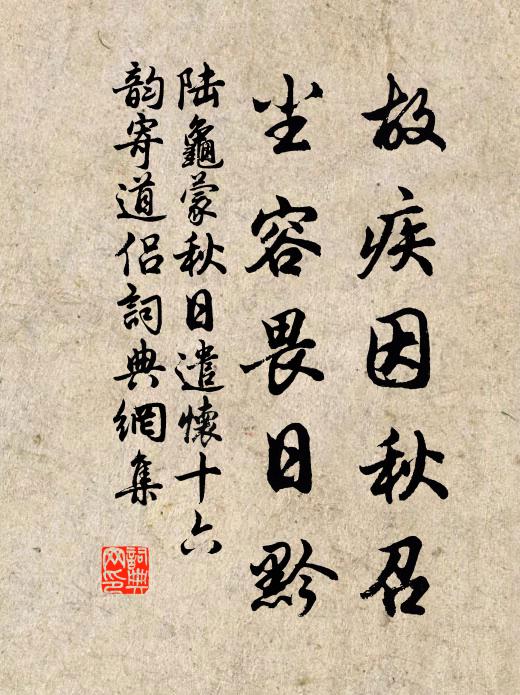 故疾因秋召
尘容畏日黔
陆龜蒙秋日遣懷十六
韵寄道侣詞典網集
詞典网印